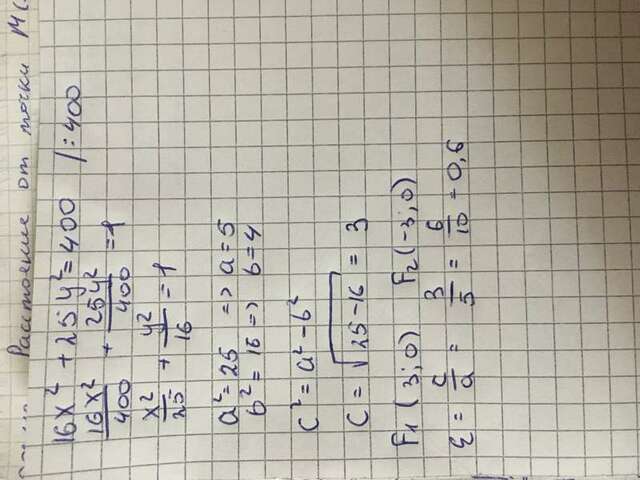 Расстояние от точки М(
16x² + 25y² = 400 /:400
16x²/400 + 25y²/400 = 1
x²/25 + y²/16 = 1
a² = 25 => a = 5
b² = 16 => b = 4
c² = a² - b²
c = √25-16 = 3
F₁(3; 0) F₂(-3; 0)
ε = c/a = 3/5 = 6/10 = 0,6